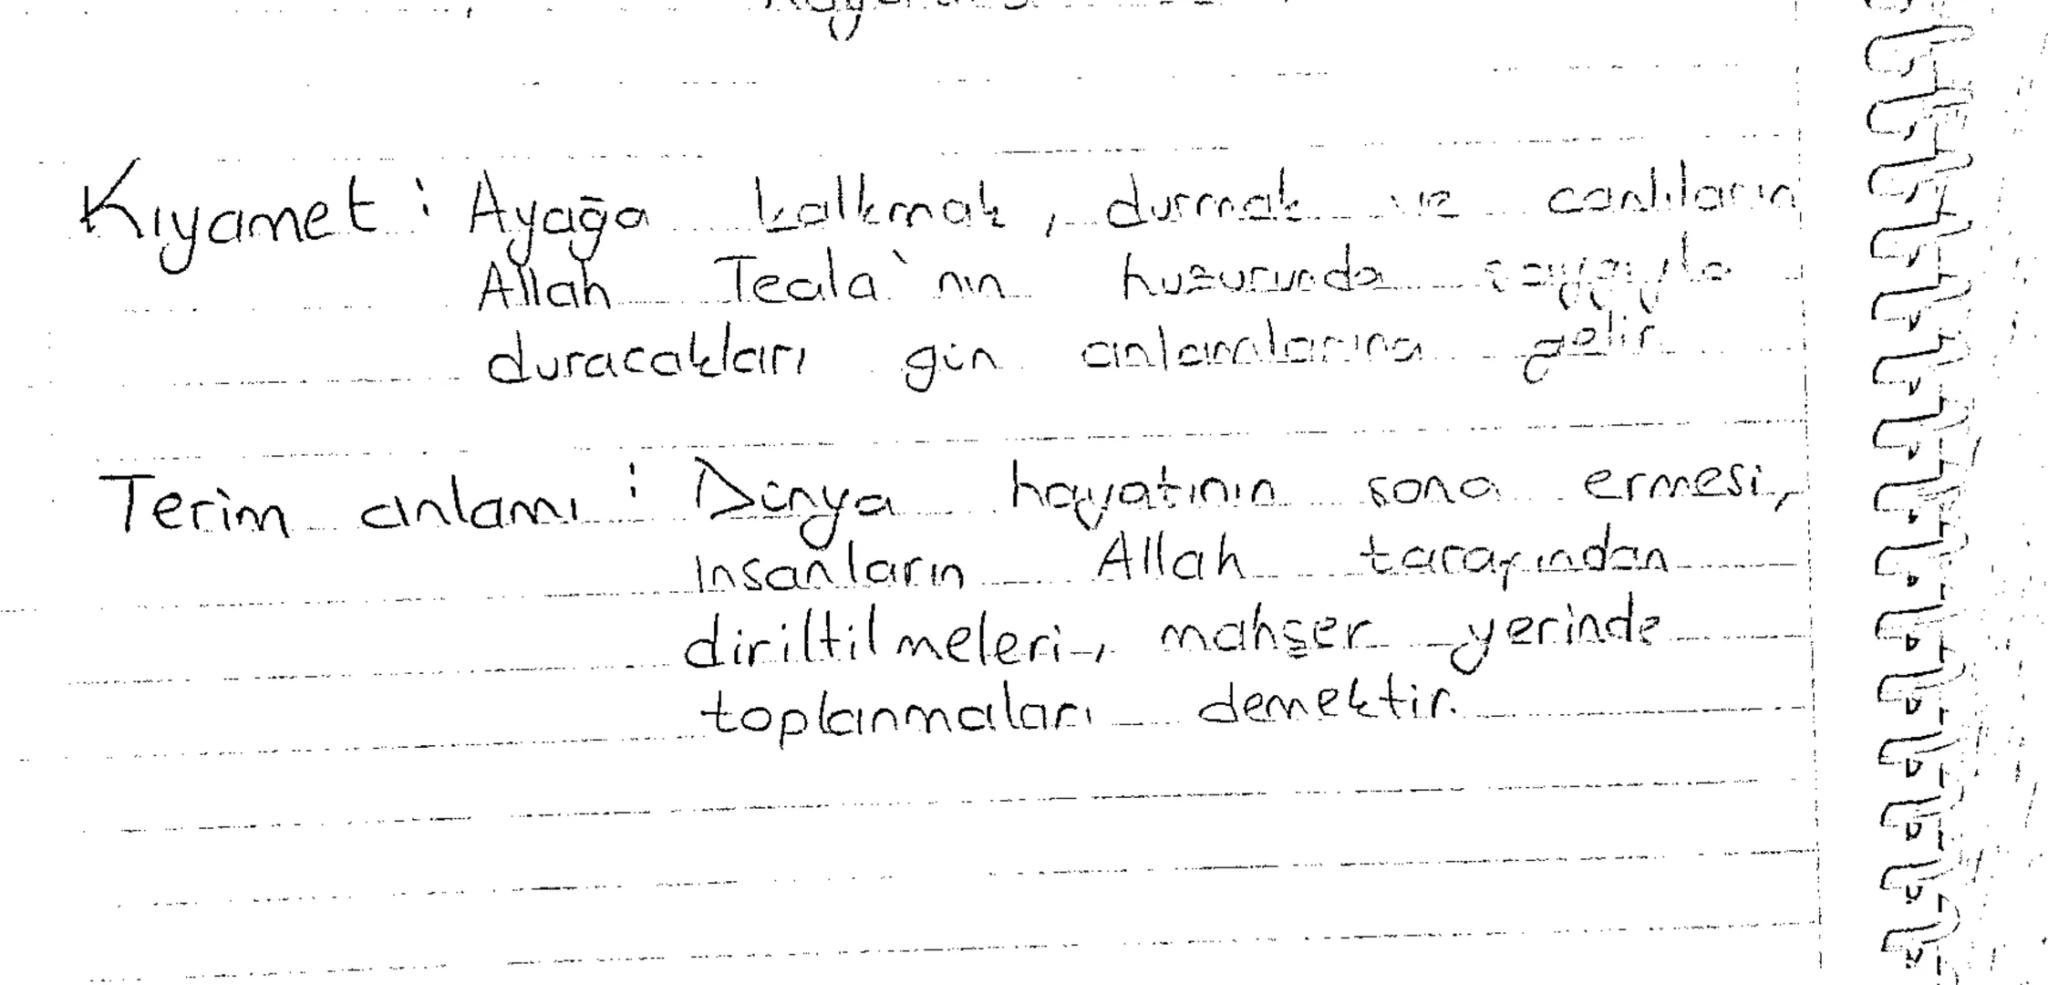 Kıyamet : Ayağa kalkmak, durmak ve canlıların
Allah Teala'nın huzurunda saygıyla
duracakları gün anlamlarına gelir
Terim anlamı : Dünya hayatının sona ermesi,
insanların Allah tarafından
diriltilmeleri, mahşer yerinde
toplanmaları demektir.